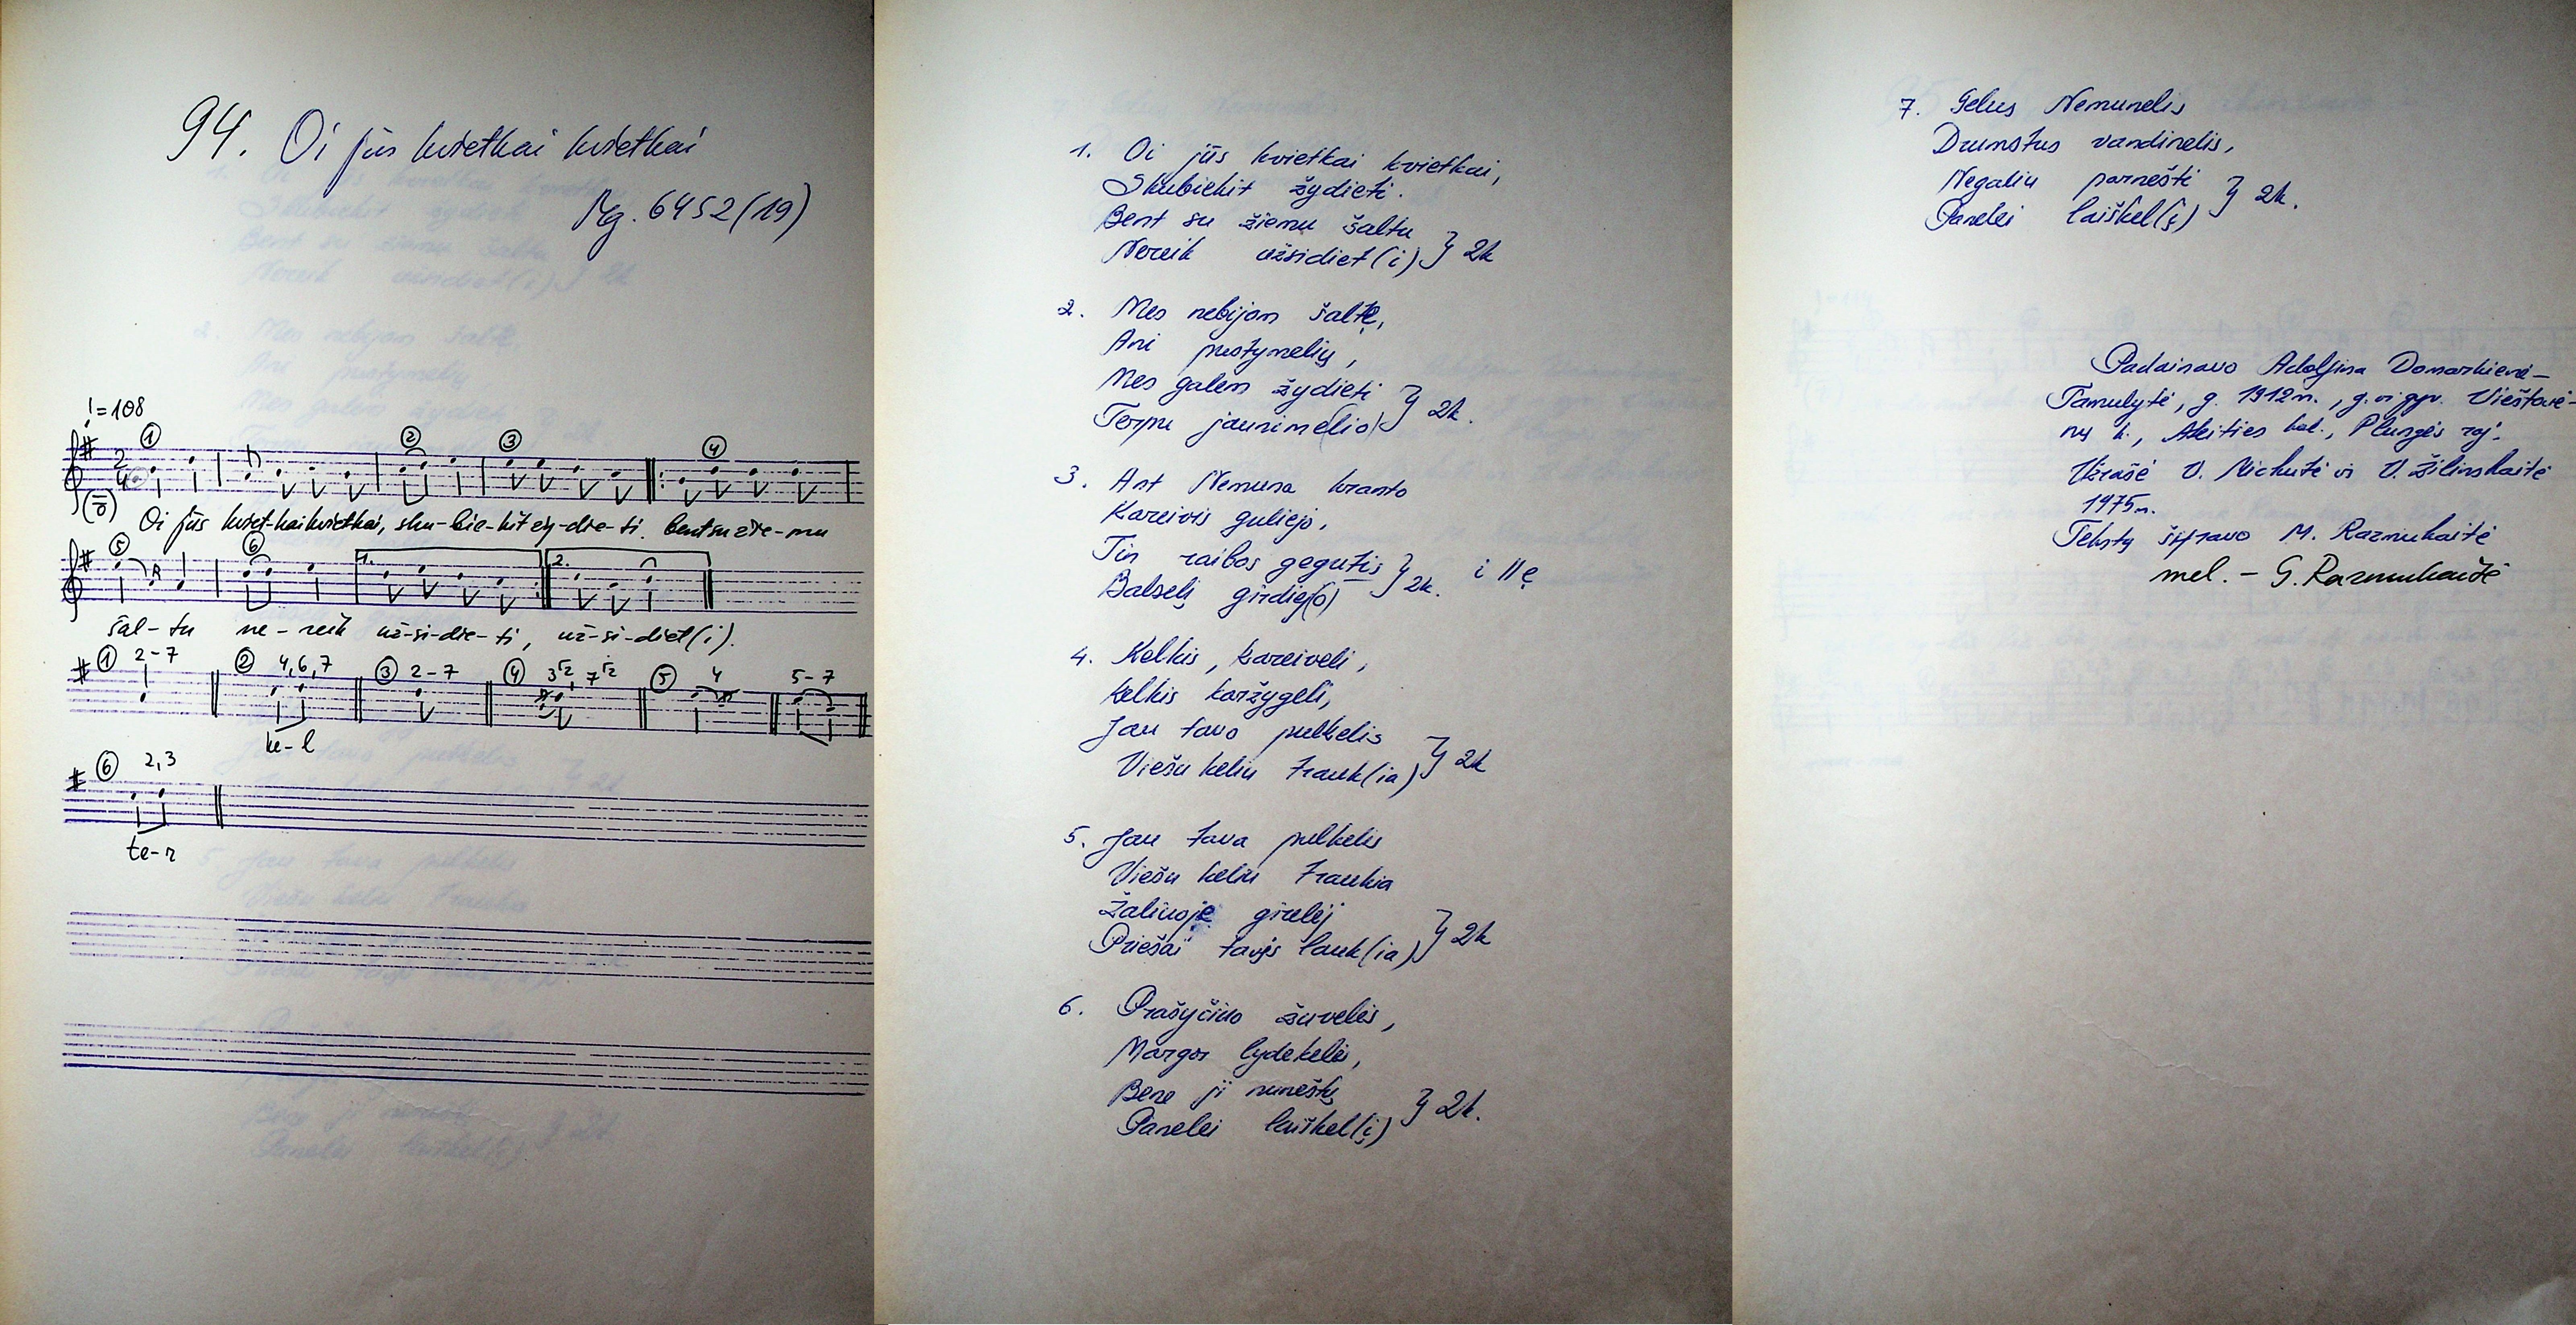 94. Oi jūs kvietkai kvietkai
Mg. 6452(19)
♩=108
① ② ③ ④
2
4
Oi jūs kviet-kai kvietkai, sku-bie-kit žy-die-ti. bent su žie-mu
⑤ ⑥ 1. 2.
šal-tu ne-reik už-si-die-ti, už-si-diet(i).
① 2-7 ② 4,6,7 ③ 2-7 ④ 3, 7 ⑤ 4 5-7
ke-l
⑥ 2,3
te-r
1. Oi jūs kvietkai kvietkai,
Skubiekit žydieti.
Bent su žiemu šaltu
Nereik užsidiet(i) } 2k
2. Mes nebijom šaltę,
Ani pustynelių,
Mes galem žydieti
Terpu jaunimelio) } 2k.
3. Ant Nemuna kranto
Kareivis guliejo,
Tin raibos gegutis
Balselį girdiej(o) } 2k. i II ę
4. Kelkis, kareiveli,
Kelkis karžygeli,
Jau tavo pulkelis
Viešu keliu trauk(ia) } 2k
5. Jau tava pulkelis
Viešu keliu traukia
Žaliuoje girelėj
Priešai tavįs lauk(ia) } 2k
6. Prašyčiuo žuvelės,
Margos lydekelės,
Bene ji nuneštų
Panelei laiškel(į) } 2k.
7. Gelus Nemunelis
Drumstus vandinelis,
Negaliu parnešti
Panelei laiškel(į) } 2k.
Padainavo Adolfina Domarkienė-
Tamulytė, g. 1912 m., g. ir gyv. Vieštovė-
nų k., Ateities kol., Plungės raj.
Užrašė V. Mickutė ir V. Žilinskaitė
1975 m.
Tekstą šifravo M. Razmukaitė
mel. - G. Razmukaitė